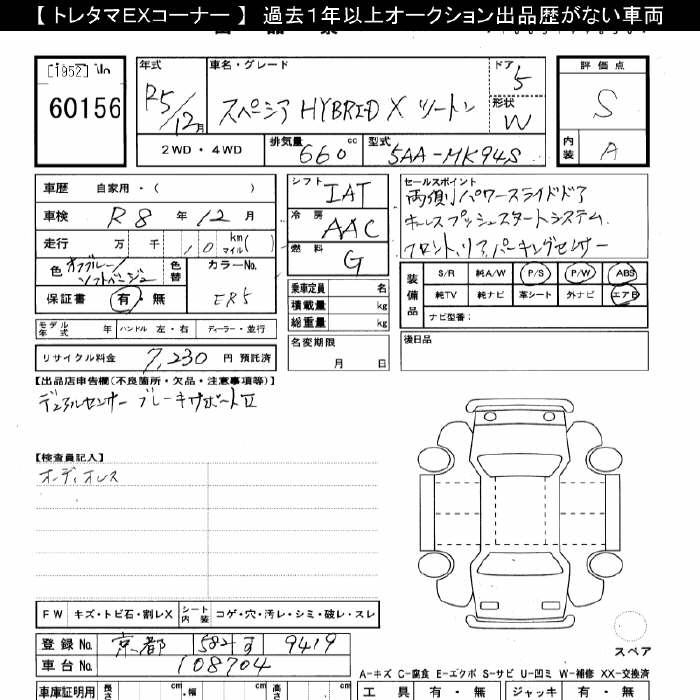 【 トレタマEXコーナー 】 過去１年以上オークション出品歴がない車両
[1952]
60156
年式
R5/12月
車名・グレード
スペーシア HYBRID X ツートン
ドア
5
形状
W
評価点
S
内装
A
2WD ・ 4WD
排気量
660 cc
型式
5AA-MK94S
車歴 自家用・( )
車検 R8 年 12 月
走行 万 千 10 km マイル( )
色 オフブルー/ソフトベージュ
色替
カラーNo.
ER5
保証書 有・無
モデル年式 年 ハンドル 左・右 ディーラー・並行
リサイクル料金 7,230 円 預託済
シフト IAT
冷房 AAC
燃料 G
乗車定員 名
積載量 kg
総重量 kg
名変期限
月 日
セールスポイント
両側パワースライドドア
キーレスプッシュスタートシステム
フロント、リアパーキングセンサー
装備品
S/R 純A/W P/S P/W ABS
純TV 純ナビ 革シート 外ナビ エアB
ナビ型番:
後日品
【出品店申告欄(不良箇所・欠品・注意事項等)】
デュアルセンサーブレーキサポートⅡ
【検査員記入】
オーディオレス
FW キズ・トビ石・割レX シート内装 コゲ・穴・汚レ・シミ・破レ・スレ
登録No. 京都 582 す 9419
車台No. 108704
スペア
A-キズ C-腐食 E-エクボ S-サビ U-凹ミ W-補修 XX-交換済
車庫証明用 長さ cm ・幅 cm 高さ cm
工具 有・無 ジャッキ 有・無